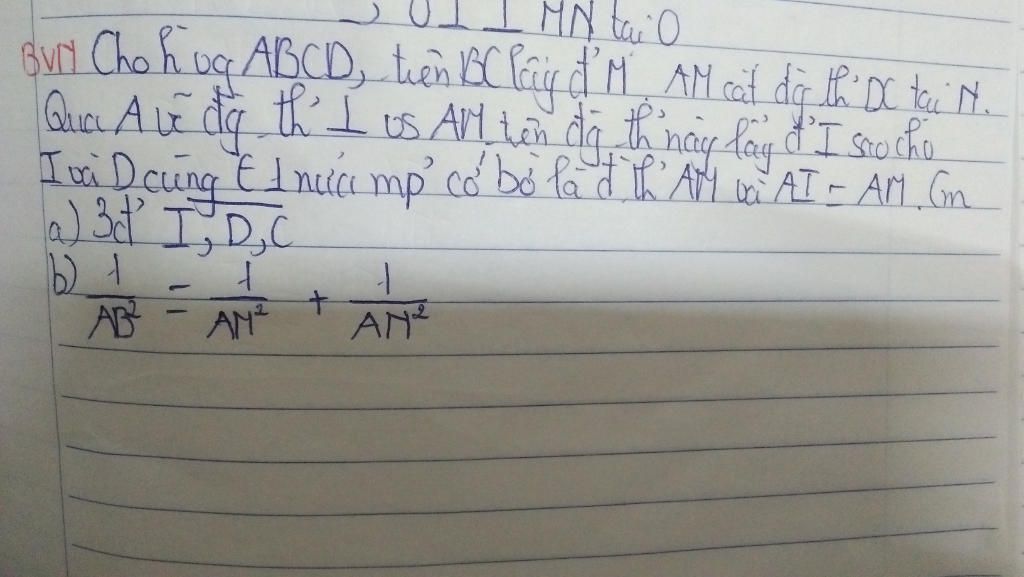 OI ⊥ MN tại O
BVN Cho h` vg ABCD, trên BC lấy đ' M. AM cắt đg th' DC tại N.
Qua A vẽ đg th' ⊥ vs AM trên đg th' này lấy đ' I sao cho
I và D cùng ∈ 1 nửa mp' có bờ là đ th' AM và AI = AM. Cm
a) 3đ' I, D, C
b) 1/AB² = 1/AM² + 1/AN²